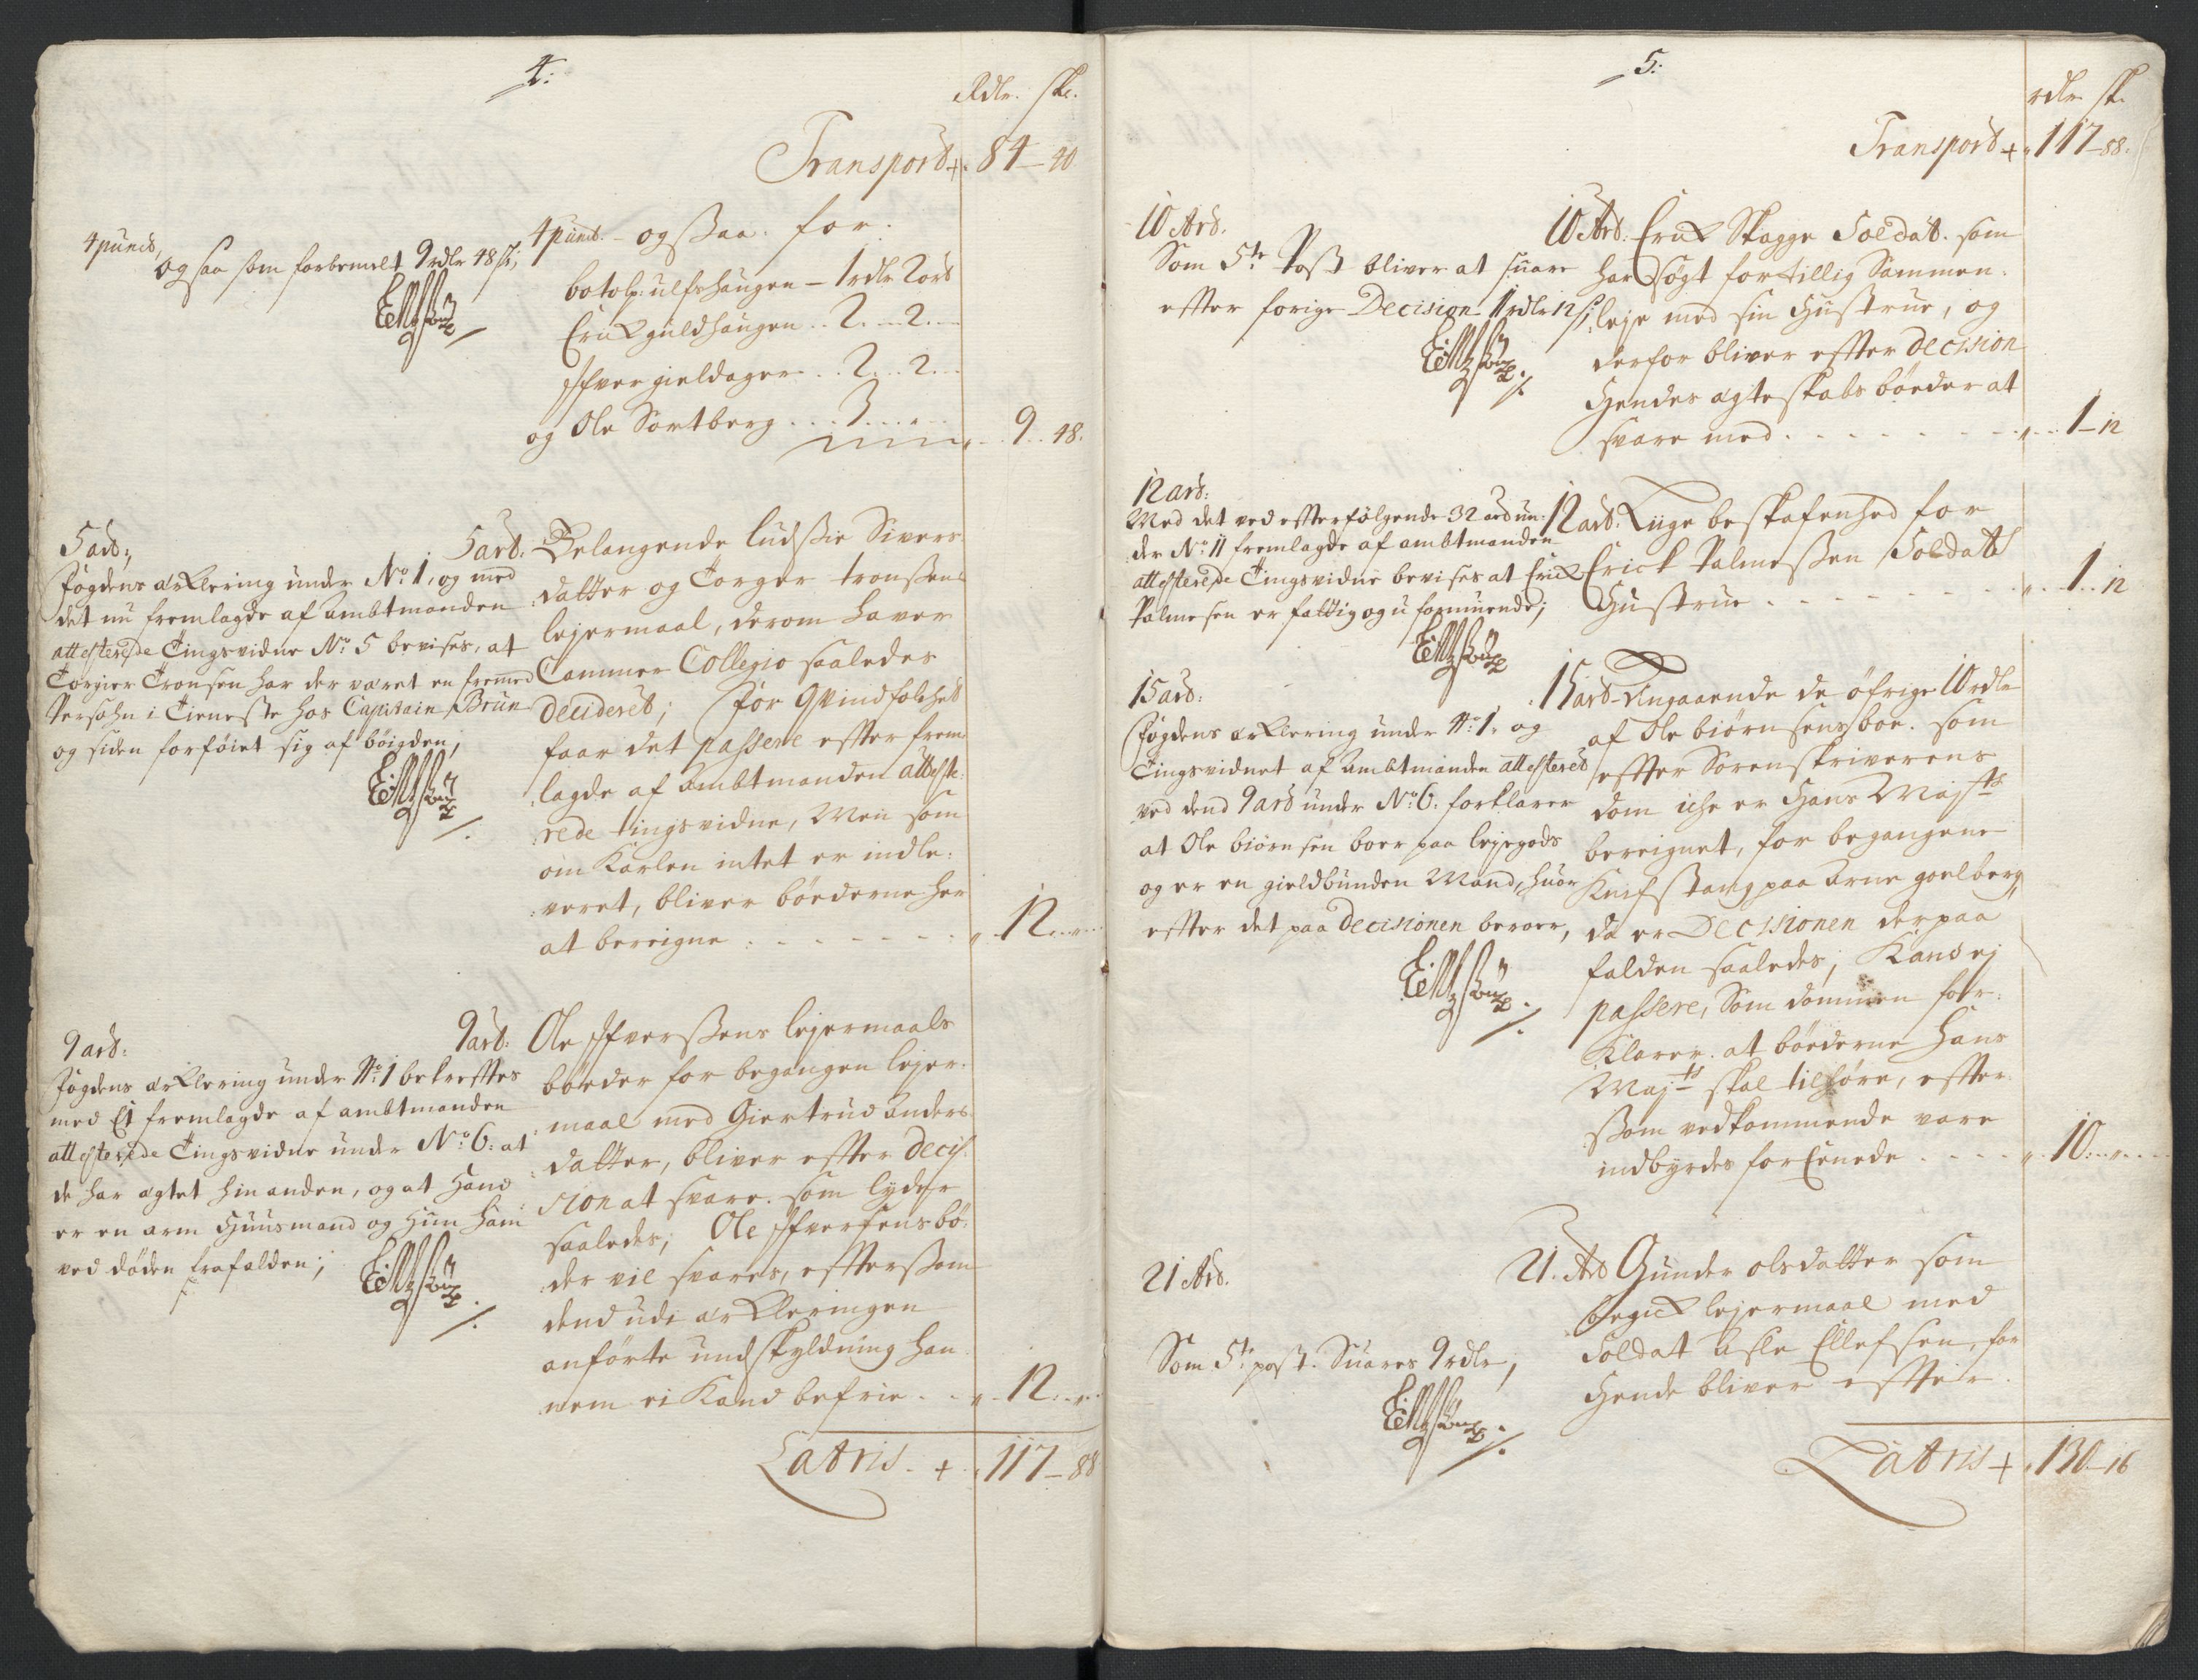 4:
Rdlr. sk.
Transport + 84 – 40
4 punct,
og saa som forbemelt 9 rdlr 48 s;
4 punct. – og ssaa. for.
botolp: ulfshaugen – 1 rdlr 2 ort
Erick guldhaugen . . 2. – 2. –
Ifver gieldager . . 2 . . 2 . –
og Ole Sortberg . . . 3 . . . . .
9 . . 48.
5 art;
fogdens erKlering under No: 1, og med
det nu fremlagde af ambtmanden
attesterede Tingsvidne No: 5 bevises, at
Torgier Tronsen har der været en fremed
Persohn i Tieneste hos Capitain Brun
og siden forføiet sig af bøigden;
5 art. Belangende ludssie Sivers
datter og Torger tronssens
lejermaal, derom haver
Cammer Collegio saaledes
decideret; For Qvindfolchet
faar det passere effter frem
lagde af ambtmanden atteste:
rede tingsvidne, Men som
om Karlen intet er indle:
veret, bliver bøederne her
at bereigne : - - - - - 12 . . . .
9 art:
fogdens erKlering under No: 1 bekrefftes
med Et fremlagde af ambtmanden
attesterede Tingsvidne under No: 6: at
de har ægtet hinanden, og at Hand
er en arm Huusmand og Hun ham
ved døden frafalden;
9 art: Ole Ifverssens lejermaals
bøeder for begangen lejer:
maal med Giertrud anders
datter, bliver effter deci:
sion at svare. som lyder
saaledes; Ole Ifversens bø:
der vil svares, effterssom
dend udi erKleringen
anførte undskyldning han
nem ei Kand befrie . . 12 . . . .
Latris. + 117 – 88
5:
rdlr sk.
Transport + 117 – 88.
10 Art.
Som 5te Post bliver at suare
effter forige Decision 1 rdlr 12 s;
10 Art: Erick Skagge Soldat. som
har søgt for tillig Sammen:
leje med sin Hustrue, og
derfor bliver effter decision
Hendes ægteskabs bøeder at
svare med . - - - - - - 1 – 12
12 art:
Med det ved effterfølgende 32 art un:
der No: 11 fremlagde af ambtmanden
attesterede Tingsvidne bevises at Erick
Palmesen er fattig og uformuende;
12 art. Liige beskafenhed for
Erick Palmessen Soldats
Hustrue . - - - - - - - 1 . . 12
15 art:
fogdens erKlering under No: 1. og
Tingsvidnet af ambtmanden attesteret
ved dend 9 art under No: 6: forklarer
at Ole biørnsen boer paa lejegods
og er en gieldbunden Mand, huor
effter det paa decisionen beroer,
15 art – Angaaende de øfrige 10 rdlr
af Ole biørnsens boe. som
effter Sorenskriverens
dom iche er Hans Majts
bereignet, for begangene
Knifstang paa arne goelberg,
da er Decisionen derpaa
falden saaledes; Kand ej
passere, Som dommen for:
Klarer. at bøederne Hans
Majts skal tilhøre, effter
ssom vedkommende vare
indbyrdes forEenede . - - - 10 . . . .
21 Art.
Som 5te post. Suares 9 rdlr;
21. Art Gunder olsdatter som
begick lejermaal med
Soldat Asle Ellefsen, for
Hende bliver effter.
Latris + 130 – 16